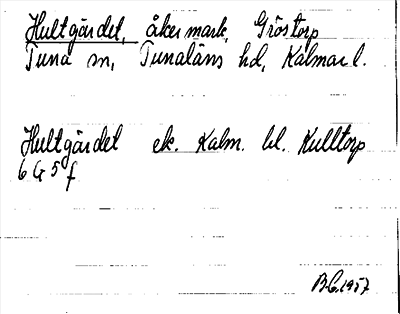 Hultgärdet, åkermark, Gröstorp
Tuna sn, Tunaläns hd, Kalmar l.
Hultgärdet ek. Kalm. bl. Kulltorp
6 G 5 f
1957